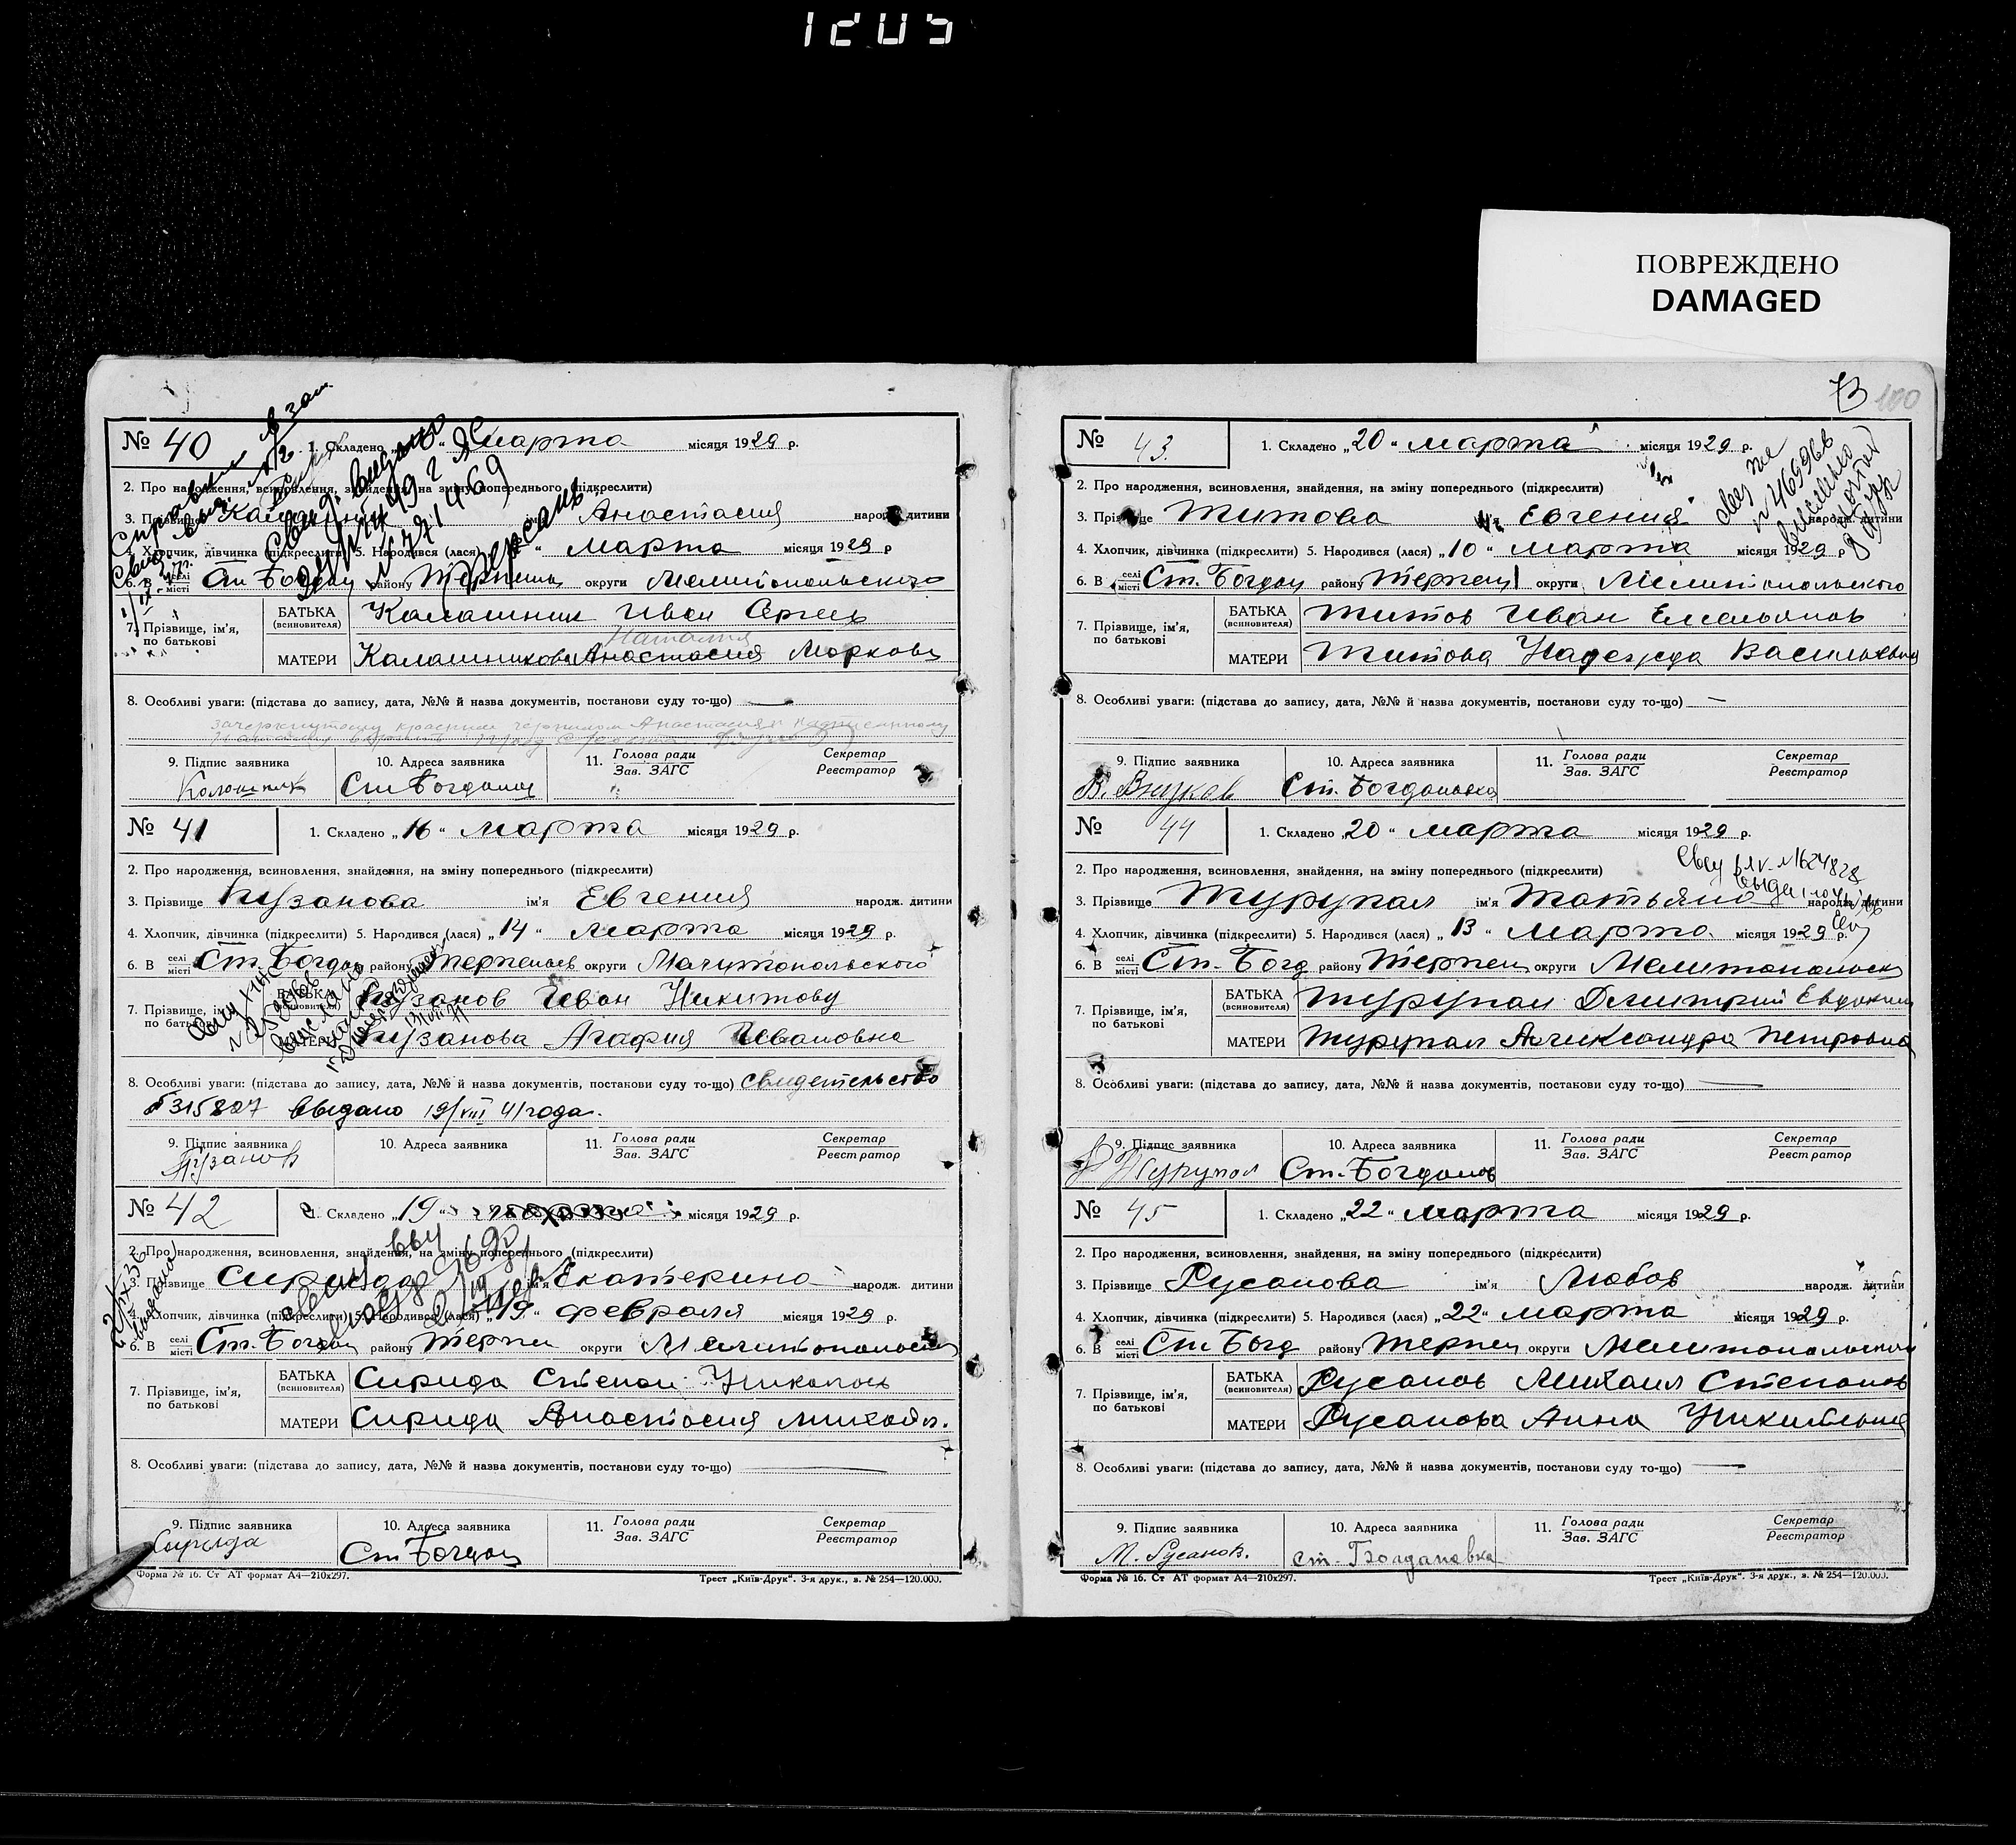 1205
ПОВРЕЖДЕНО
DAMAGED
№ 40
1. Складено „ “ Марта місяця 1929 р.
2. Про народження, всиновлення, знайдення, на зміну попереднього (підкреслити)
3. Прізвище ім’я Анастасия народж. дитини
4. Хлопчик, дівчинка (підкреслити) 5. Народився (лася) „ “ Марта місяця 1929 р
6. В селі місті Ст. Богдан району Терпень округи Мелитопольского
7. Прізвище, ім’я, по батькові
БАТЬКА (всиновителя) Калашник Иван Сергеев
Наталия
МАТЕРИ Калашникова Анастасия Маркова
8. Особливі уваги: (підстава до запису, дата, №№ й назва документів, постанови суду то-що)
зачеркнутому красными чернилом Анастасия и надписанному
9. Підпис заявника
10. Адреса заявника Ст Богдан
11. Голова ради Зав. ЗАГС
Секретар Реєстратор
№ 41
1. Складено „16“ Марта місяця 1929 р.
2. Про народження, всиновлення, знайдення, на зміну попереднього (підкреслити)
3. Прізвище Пузанова ім’я Евгения народж. дитини
4. Хлопчик, дівчинка (підкреслити) 5. Народився (лася) „14“ Марта місяця 1929 р.
6. В селі місті Ст. Богдан району Терпеньев округи Мелитопольского
7. Прізвище, ім’я, по батькові
БАТЬКА (всиновителя) Пузанов Иван Никитову
МАТЕРИ Пузанова Агафия Ивановна
8. Особливі уваги: (підстава до запису, дата, №№ й назва документів, постанови суду то-що) свидетельство
315827 выдано 19/VIII 41 года.
9. Підпис заявника Пузанов
10. Адреса заявника
11. Голова ради Зав. ЗАГС
Секретар Реєстратор
№ 42
1. Складено „19“ місяця 1929 р.
2. Про народження, всиновлення, знайдення, на зміну попереднього (підкреслити)
3. Прізвище Сирида ім’я Екатерина народж. дитини
4. Хлопчик, дівчинка (підкреслити) 5. Народився (лася) „19“ февраля місяця 1929 р.
6. В селі місті Ст. Богдан району Терпен округи Мелитопольськ
7. Прізвище, ім’я, по батькові
БАТЬКА (всиновителя) Сирида Степан Николаев
МАТЕРИ Сирида Анастасия Михайл.
8. Особливі уваги: (підстава до запису, дата, №№ й назва документів, постанови суду то-що)
9. Підпис заявника Сирида
10. Адреса заявника Ст Богдан
11. Голова ради Зав. ЗАГС
Секретар Реєстратор
Форма № 16. Ст АТ формат А4—210х297.
Трест „Київ-Друк“. 3-я друк., з. № 254—120.000.
73 100
№ 43
1. Складено „20“ марта місяця 1929 р.
2. Про народження, всиновлення, знайдення, на зміну попереднього (підкреслити)
3. Прізвище Титова ім’я Евгения народж. дитини
4. Хлопчик, дівчинка (підкреслити) 5. Народився (лася) „10“ марта місяця 1929 р
6. В селі місті Ст. Богдан району Терпен округи Мелитопольского
7. Прізвище, ім’я, по батькові
БАТЬКА (всиновителя) Титов Иван Емельянов
МАТЕРИ Титова Надежда Васильевна
8. Особливі уваги: (підстава до запису, дата, №№ й назва документів, постанови суду то-що) —
9. Підпис заявника В. Внуков
10. Адреса заявника Ст. Богдановка
11. Голова ради Зав. ЗАГС
Секретар Реєстратор
№ 44
1. Складено „20“ марта місяця 1929 р.
2. Про народження, всиновлення, знайдення, на зміну попереднього (підкреслити)
3. Прізвище Турупал ім’я Татьяна народж. дитини
4. Хлопчик, дівчинка (підкреслити) 5. Народився (лася) „13“ Марта місяця 1929 р.
6. В селі місті Ст. Богд району Терпен округи Мелитопольск
7. Прізвище, ім’я, по батькові
БАТЬКА (всиновителя) Турупал Дмитрий Евдоким
МАТЕРИ Турупал Александра Петровна
8. Особливі уваги: (підстава до запису, дата, №№ й назва документів, постанови суду то-що) —
9. Підпис заявника Турупал
10. Адреса заявника Ст. Богданов
11. Голова ради Зав. ЗАГС
Секретар Реєстратор
№ 45
1. Складено „22“ марта місяця 1929 р.
2. Про народження, всиновлення, знайдення, на зміну попереднього (підкреслити)
3. Прізвище Русанова ім’я Любов народж. дитини
4. Хлопчик, дівчинка (підкреслити) 5. Народився (лася) „22“ марта місяця 1929 р.
6. В селі місті Ст. Богд району Терпен округи Мелитопольский
7. Прізвище, ім’я, по батькові
БАТЬКА (всиновителя) Русанов Михаил Степанов
МАТЕРИ Русанова Анна Никитовна
8. Особливі уваги: (підстава до запису, дата, №№ й назва документів, постанови суду то-що) —
9. Підпис заявника М. Русанов.
10. Адреса заявника ст. Богдановка
11. Голова ради Зав. ЗАГС
Секретар Реєстратор
Форма № 16. Ст АТ формат А4—210х297.
Трест „Київ-Друк“. 3-я друк., з. № 254—120.000.